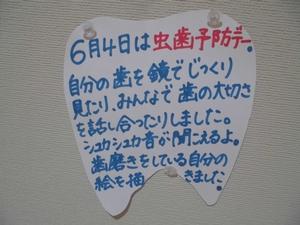 6月4日は虫歯予防デー。
自分の歯を鏡でじっくり
見たり、みんなで歯の大切さ
を話し合ったりしました。
シュカシュカ音が聞こえるよ。
歯磨きをしている自分の
絵を描きました